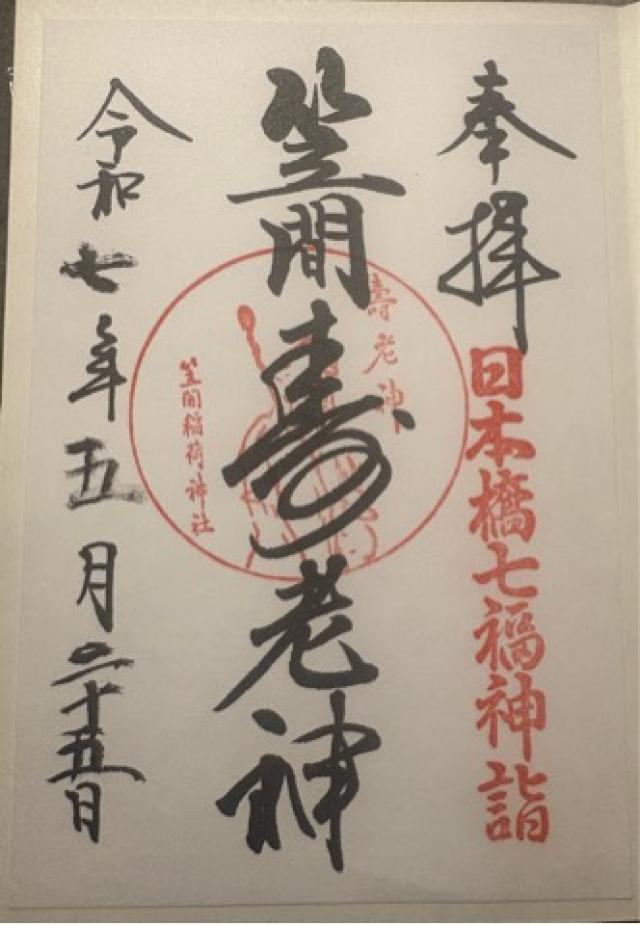 奉拝
日本橋七福神詣
笠間寿老神
壽老神
笠間稲荷神社
令和七年五月二十五日